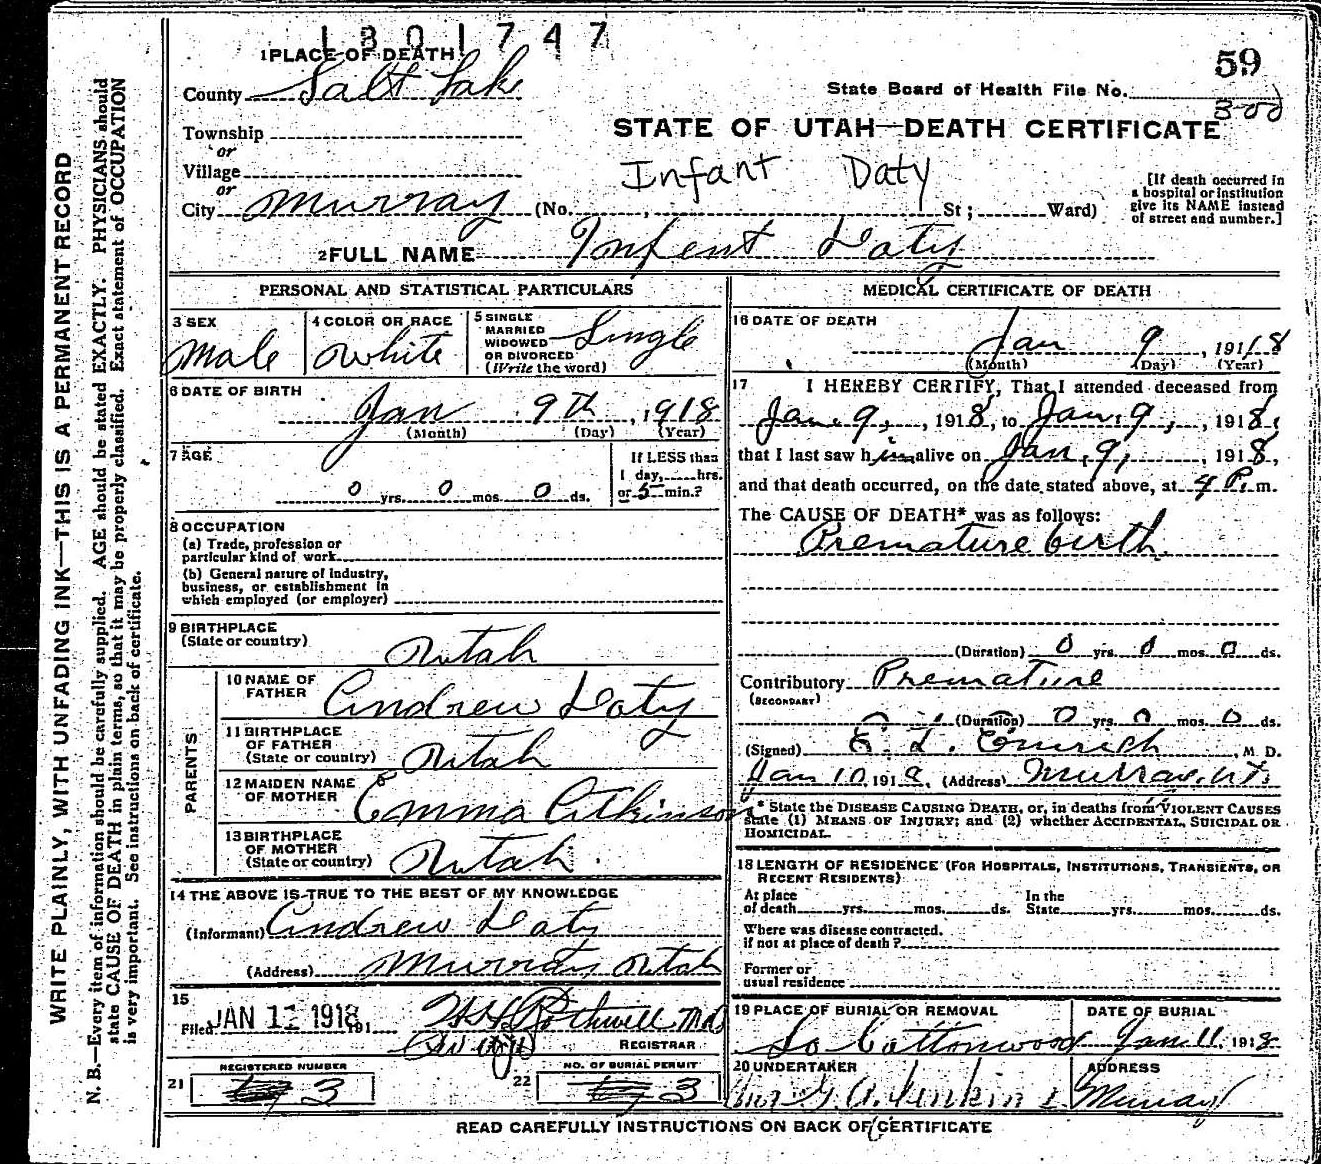 1301747
1 PLACE OF DEATH
59
County Salt Lake
State Board of Health File No.
300
Township
STATE OF UTAH—DEATH CERTIFICATE
or
Village
Infant Daty
or
City Murray (No. , St ; Ward)
[If death occurred in
a hospital or institution
give its NAME instead
of street and number.]
2 FULL NAME Infent Daty
PERSONAL AND STATISTICAL PARTICULARS
3 SEX
Male
4 COLOR OR RACE
White
5 SINGLE
MARRIED
WIDOWED
OR DIVORCED
(Write the word)
Single
6 DATE OF BIRTH
Jan 9th, 1918
(Month) (Day) (Year)
7 AGE
0 yrs. 0 mos. 0 ds.
If LESS than
1 day, hrs.
or 5 min.?
8 OCCUPATION
(a) Trade, profession or
particular kind of work
(b) General nature of industry,
business, or establishment in
which employed (or employer)
9 BIRTHPLACE
(State or country)
Utah
PARENTS
10 NAME OF
FATHER
Andrew Daty
11 BIRTHPLACE
OF FATHER
(State or country)
Utah
12 MAIDEN NAME
OF MOTHER
Emma Atkinson
13 BIRTHPLACE
OF MOTHER
(State or country)
Utah.
14 THE ABOVE IS TRUE TO THE BEST OF MY KNOWLEDGE
(Informant) Andrew Daty
(Address) Murray Utah
15
Filed JAN 11 1918 191
Rothwell Md
REGISTRAR
REGISTERED NUMBER
21 3
NO. OF BURIAL PERMIT
22 3
MEDICAL CERTIFICATE OF DEATH
16 DATE OF DEATH
Jan 9, 1918
(Month) (Day) (Year)
17 I HEREBY CERTIFY, That I attended deceased from
Jan. 9, 1918, to Jan. 9, 1918,
that I last saw him alive on Jan. 9, 1918,
and that death occurred, on the date stated above, at 4 P.m.
The CAUSE OF DEATH* was as follows:
Premature birth
(Duration) 0 yrs. 0 mos. 0 ds.
Contributory Premature
(SECONDARY)
(Duration) 0 yrs. 0 mos. 0 ds.
(Signed) E. L. Emrich, M D.
Jan 10, 1918, (Address) Murray, Ut.
* State the DISEASE CAUSING DEATH, or, in deaths from VIOLENT CAUSES
state (1) MEANS OF INJURY; and (2) whether ACCIDENTAL, SUICIDAL OR
HOMICIDAL.
18 LENGTH OF RESIDENCE (FOR HOSPITALS, INSTITUTIONS, TRANSIENTS, OR
RECENT RESIDENTS)
At place
of death yrs. mos. ds.
In the
State yrs. mos. ds.
Where was disease contracted,
if not at place of death?
Former or
usual residence
19 PLACE OF BURIAL OR REMOVAL
So Cottonwood
DATE OF BURIAL
Jan 11. 1918
20 UNDERTAKER
G. A. Jenkin
ADDRESS
Murray
READ CAREFULLY INSTRUCTIONS ON BACK OF CERTIFICATE
WRITE PLAINLY, WITH UNFADING INK—THIS IS A PERMANENT RECORD
N. B.—Every item of information should be carefully supplied. AGE should be stated EXACTLY. PHYSICIANS should
state CAUSE OF DEATH in plain terms, so that it may be properly classified. Exact statement of OCCUPATION
is very important. See instructions on back of certificate.